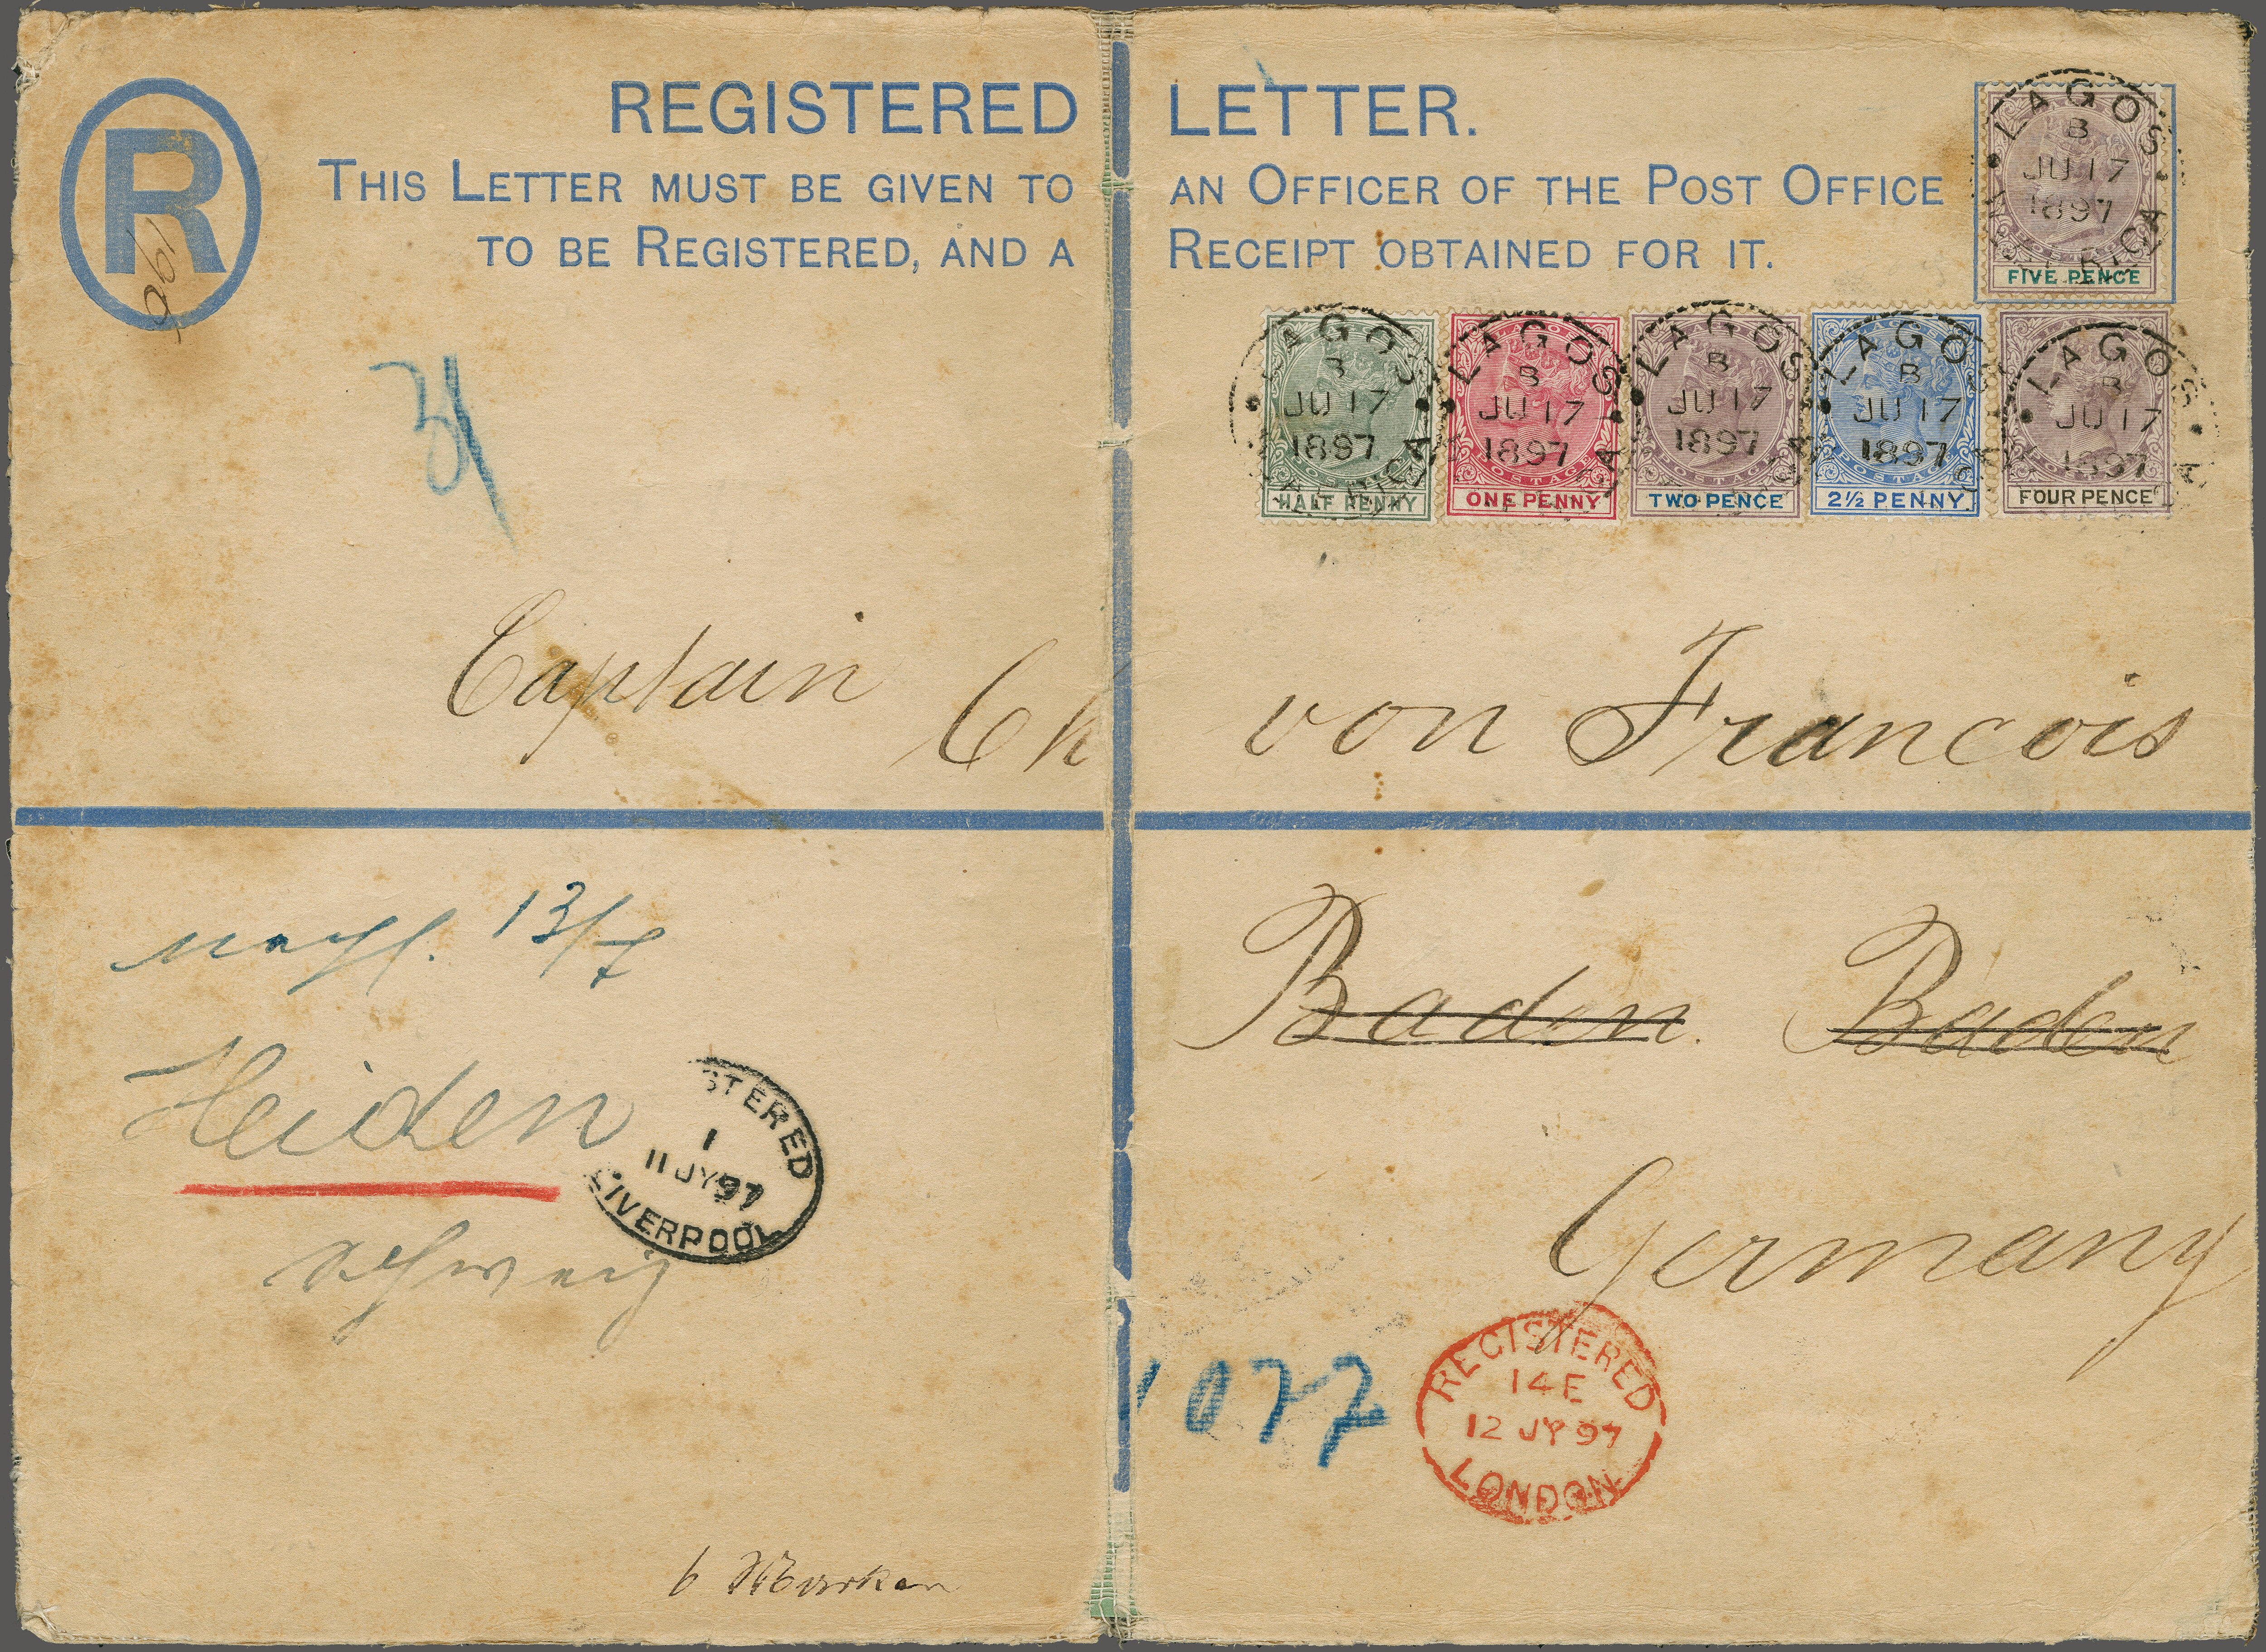 REGISTERED LETTER.
THIS LETTER MUST BE GIVEN TO AN OFFICER OF THE POST OFFICE
TO BE REGISTERED, AND A RECEIPT OBTAINED FOR IT.
R
LAGOS
B
JU 17
1897
FIVE PENCE
LAGOS
B
JU 17
1897
HALF PENNY
LAGOS
B
JU 17
1897
POSTAGE
ONE PENNY
LAGOS
B
JU 17
1897
POSTAGE
TWO PENCE
LAGOS
B
JU 17
1897
POSTAGE
2½ PENNY
LAGOS
B
JU 17
1897
FOUR PENCE
Captain Ch von Francois
13/7
Baden. Baden
Heiden
STERED
1
11 JY 97
LIVERPOOL
Schweiz
Germany
1077
REGISTERED
14E
12 JY 97
LONDON
6 Marken